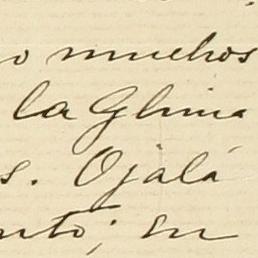 o muchos
la China
s. Ojalá
nto; en